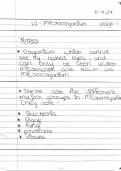 12 - Microorganism page 1
Notes
• Organism which cannot
see by naked eyes, and
can only be seen under
microscope are known as
microorganism
• There are the different
major groups in microorganism
They are:
• Bacteria
• Algae
• Fungi
• protozoa
• Viruses